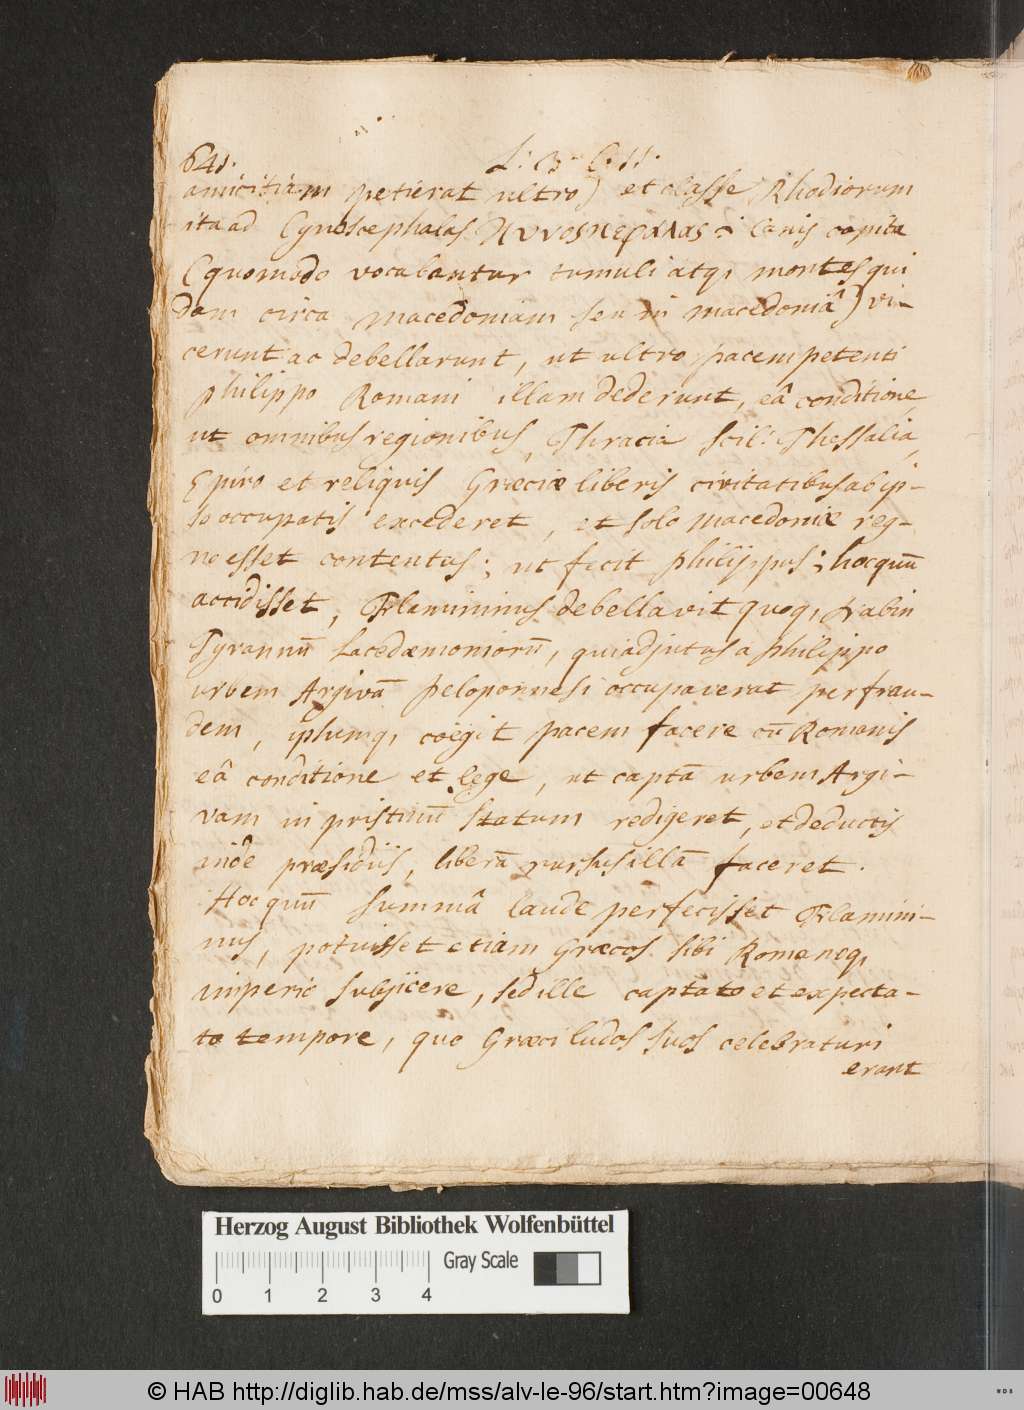 641. L: 3. C. 11.
amicitiam petierat ultro) et classe Rhodiorum
ita ad Cynoscephalas Κυνοσκεφαλας i Canis capita
(quomodo vocabantur tumuli atq, montes qui
dam circa Macedoniam seu in Macedoniâ) vi-
cerunt ac debellarunt, ut ultro pacem petenti
Philippo Romani illam dederunt, eâ conditione,
ut omnibus regionibus, Thracia scil: Thessalia,
Epiro et reliquis Græciæ liberis civitatibus ab ip-
so occupatis excederet, et solo Macedoniæ reg-
no esset contentus; ut fecit Philippus; hoc quū
accidisset, Flamininus debellavit quoq, Nabin
Tyrannū Lacedæmoniorū, qui adjutus a Philippo
urbem Argivā Peloponnesi occupaverat per frau-
dem, ipsumq, coëgit pacem facere cū Romanis
eâ conditione et lege, ut captā urbem Argi-
vam in pristinū statum redigeret, et deductis
inde præsidiis, liberā rursus illā faceret.
Hoc quū summâ laude perfecisset Flamini-
nus, potuisset etiam Græcos sibi Romanoq,
imperio subjicere, sed ille captato et expecta-
to tempore, quo Græci ludos suos celebraturi
erant
Herzog August Bibliothek Wolfenbüttel
Gray Scale
0 1 2 3 4
© HAB http://diglib.hab.de/mss/alv-le-96/start.htm?image=00648